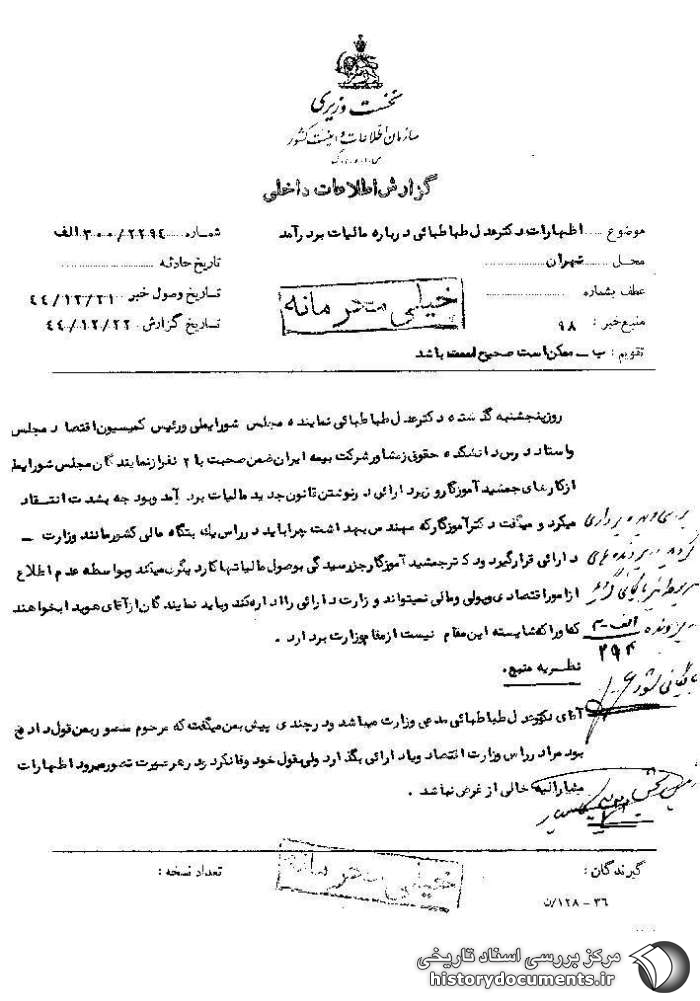 نخست وزیری
سازمان اطلاعات و امنیت کشور
گزارش اطلاعات داخلی
موضوع ..... اظهارات دکترعدل طباطبائی درباره مالیات بردرآمد
شماره ..... ۳۰۰/۲۲۹۴ الف
محل ..... تهران
تاریخ حادثه
عطف بشماره
تاریخ وصول خبر ۴۴/۱۲/۲۱
خیلی محرمانه
منبع خبر : ۹۸
تاریخ گزارش ۴۴/۱۲/۲۲
تقویم : ب ـ ممکن است صحیح باشد
روز پنجشنبه گذشته دکترعدل طباطبائی نماینده مجلس شورایملی و رئیس کمیسیون اقتصاد مجلس
و استاد درس دانشکده حقوق و مشاور شرکت بیمه ایران ضمن صحبت با ۲ نفر از نمایندگان مجلس شورایملی
از کارهای جمشید آموزگار وزیر دارائی در نوشتن قانون جدید مالیات بردرآمد و بودجه بشدت انتقاد
میکرد و میگفت دکترآموزگار که مهندس بهداشت چرا باید در راس یک دستگاه مالی کشور مانند وزارت ـ
دارائی قرار گیرد و دکترجمشید آموزگار جز رسیدگی بوصول مالیاتها کار دیگری نمیکند و بواسطه عدم اطلاع
از امور اقتصادی و پولی و مالی نمیتواند وزارت دارائی را اداره کند و باید نمایندگان از آقای هویدا بخواهند
که او را که شایسته این مقام نیست از مقام وزارت بردارد .
نظریه منبع .
آقای دکترعدل طباطبائی مدعی وزارت میباشد و در چندی پیش بمن میگفت که مرحوم منصور بمن قول داده
بود مرا در راس وزارت اقتصاد و یا دارائی بگذارد ولی بقول خود وفا نکرد در هر صورت تصور میرود اظهارات
مشارالیه خالی از غرض نباشد .
بررسی و بهره برداری
گردید در پرونده‌های
مربوطه بایگانی گردید
پرونده الف-م
۲۹۴
بایگانی شود
گیرندگان :
تعداد نسخه :
خیلی محرمانه
۳۶ – ۱۲۸/ن
مرکز بررسی اسناد تاریخی
historydocuments.ir